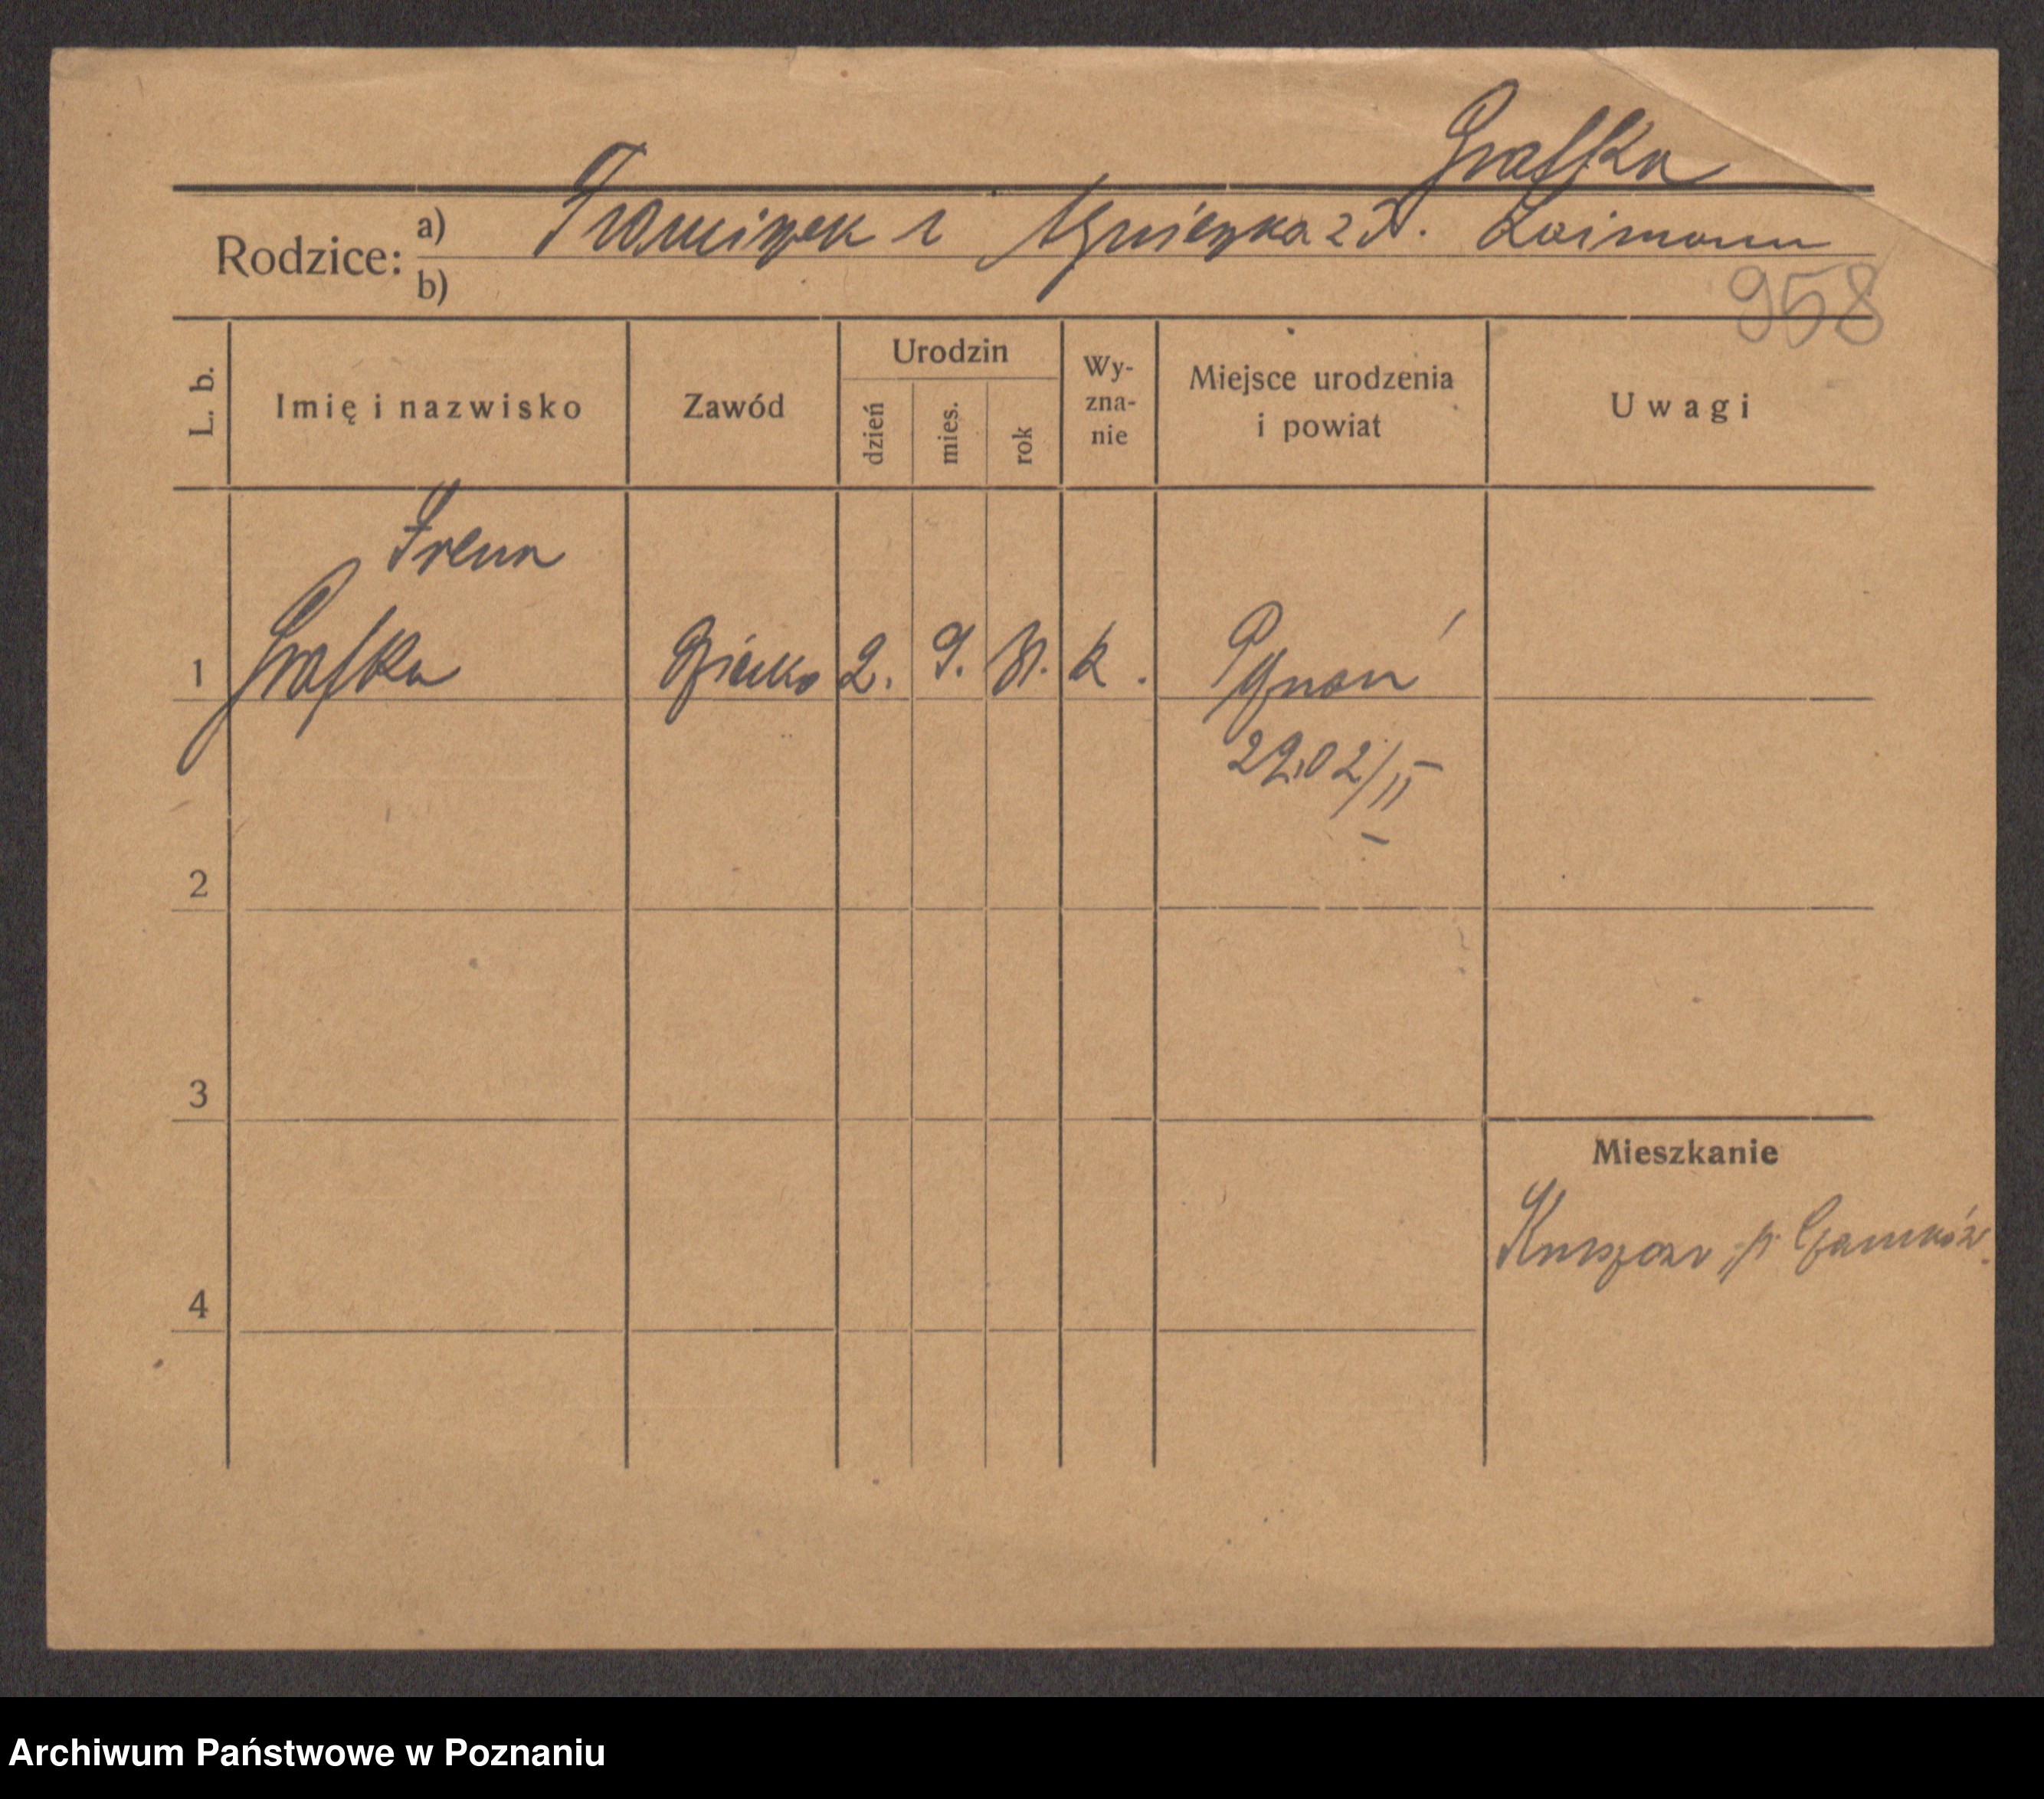 Grafka
Rodzice: a) Franciszek i Agnieszka z d. Laimann
b)
958
L. b. Imię i nazwisko Zawód Urodzin dzień mies. rok Wy-zna-nie Miejsce urodzenia i powiat Uwagi
Irena
1 Grafka Dziecko 2. 9. 31. k. Poznań
2202/II
2
3
Mieszkanie
p. Czarnków.
4
Archiwum Państwowe w Poznaniu